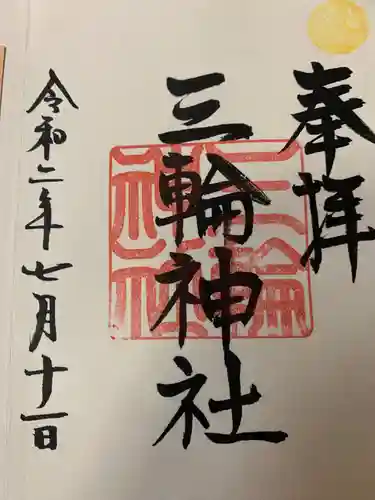 奉拝
三輪神社
令和二年七月十一日
三輪神社